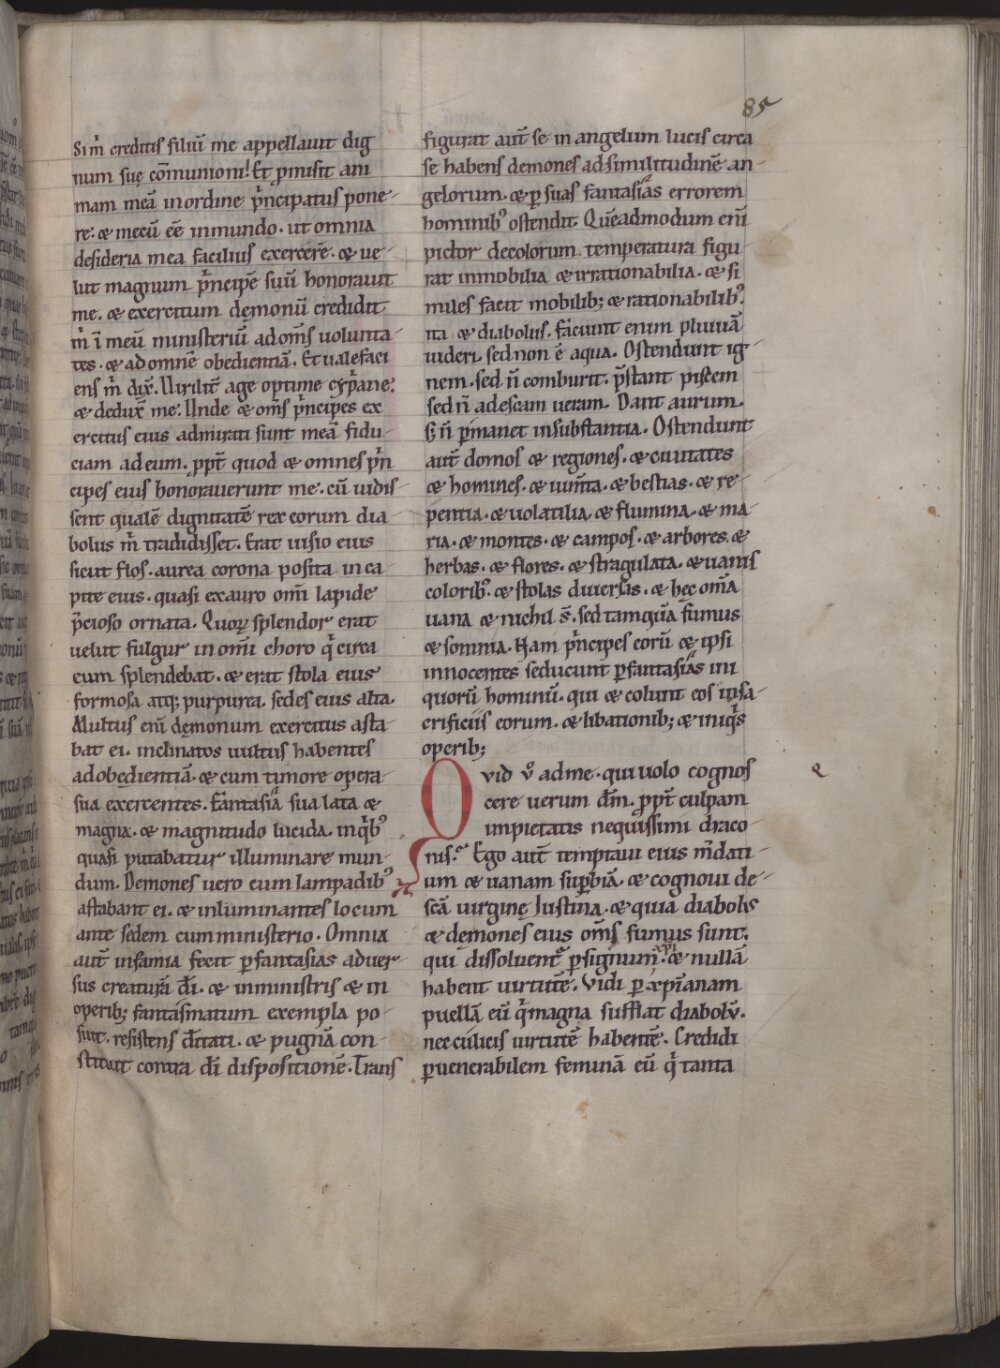 85
Si m̄ creditis filiū me appellauit dig
num suę cōmunioni! Et ꝓmisit ani
mam meā in ordine p̄ncipatus pone
re: & mecū eē in mundo. ut omnia
desideria mea facilius exercerē. & ue
lut magnum p̄ncipē suū honorauit
me. & exercitum dęmonū credidit
m̄ ī meū ministeriū ad om̄s uolunta
tes. & ad omnē obedientiā. Et ualefaci
ens m̄ dix̄. Uirilit̄ age optime cyp̄ane:
& dedux̄ me. Unde & om̄s p̄ncipes ex
ercitus eius admirati sunt meā fidu
ciam ad eum. ꝓpt̄ quod & omnes p̄n
cipes eius honorauerunt me. cū uidis
sent qualē dignitatē rex eorum dia
bolus m̄ tradidisset. Erat uisio eius
sicut flos. aurea corona posita in ca
pite eius. quasi ex auro om̄i lapide
p̄cioso ornata. Quoꝝ splendor erat
uelut fulgur in om̄i choro q̄ circa
eum splendebat. & erat stola eius
formosa atq; purpurea. sedes eius alta.
Multus eni̅ dęmonum exercitus asta
bat ei. inclinatos uultus habentes
ad obędientiā. & cum timore opera
sua exercentes. Fantasiā sua lata &
magna. & magnitudo lucida. in q̄bꝰ
quasi putabatur illuminare mun
dum. Demones uero eum lampadibꝰ
astabant ei. & inluminantes locum
ante sedem cum ministerio. Omnia
aut̄ infamia fecit ꝑ fantasias aduer
sus creaturā dī. & in ministris & in
operib; fantasmatum exempla po
suit. resistens d̄itati. & pugnā con
stituit contra dī dispositionē. Trans
figurat aut̄ se in angelum lucis circa
se habens demones ad similitudinē an
gelorum. & ꝑ suas fantasias errorem
hominibꝰ ostendit. Quēadmodum eni̅
pictor de colorum temperatura figu
rat inmobilia & irrationabilia. & si
miles facit mobilib; & rationabilibꝰ.
ita & diabolus. faciunt enim pluuiā
uideri. sed non ē aqua. Ostendunt ig
nem. sed n̄ comburit. p̄stant piscem
sed n̄ ad escam ueram. Dant aurum.
s; n̄ ꝑmanet in substantia. Ostendunt
aut̄ domos & regiones. & ciuitates
& homines. & ium̄ta. & bestias. & re
pentia. & uolatilia. & flumina. & ma
ria. & montes. & campos. & arbores. &
herbas. & flores. & stragulata. & uariis
coloribꝰ. & stolas diuersas. & hęc om̄a
uana & nichil s̄. sed tamquā fumus
& somnia. Nam p̄ncipes eorū & ipsi
innocentes seducunt ꝑ fantasias ini
quorū hominū. qui & colunt eos in sa
crificiis eorum. & libationib; & iniq̄s
operib;
Quid v̊ ad me. qui uolo cognos
cere uerum dm̄. ꝓpt̄ culpam
impietatis nequissimi draco
nis. Ego aut̄ temptaui eius m̄dati
um & uanam suꝑbiā. & cognoui de
scā uirginę Iustina. & quia diabolus
& dęmones eius om̄s fumus sunt.
qui dissoluent̄ ꝑ signum xp̄i. & nullā
habent uirtutē. Vidi ꝑ xp̄ianam
puellā eū q̄ magna sufflat diabolū.
nec culicis uirtutē habentē. Credidi
ꝑ uenerabilem feminā eū q̄ tanta